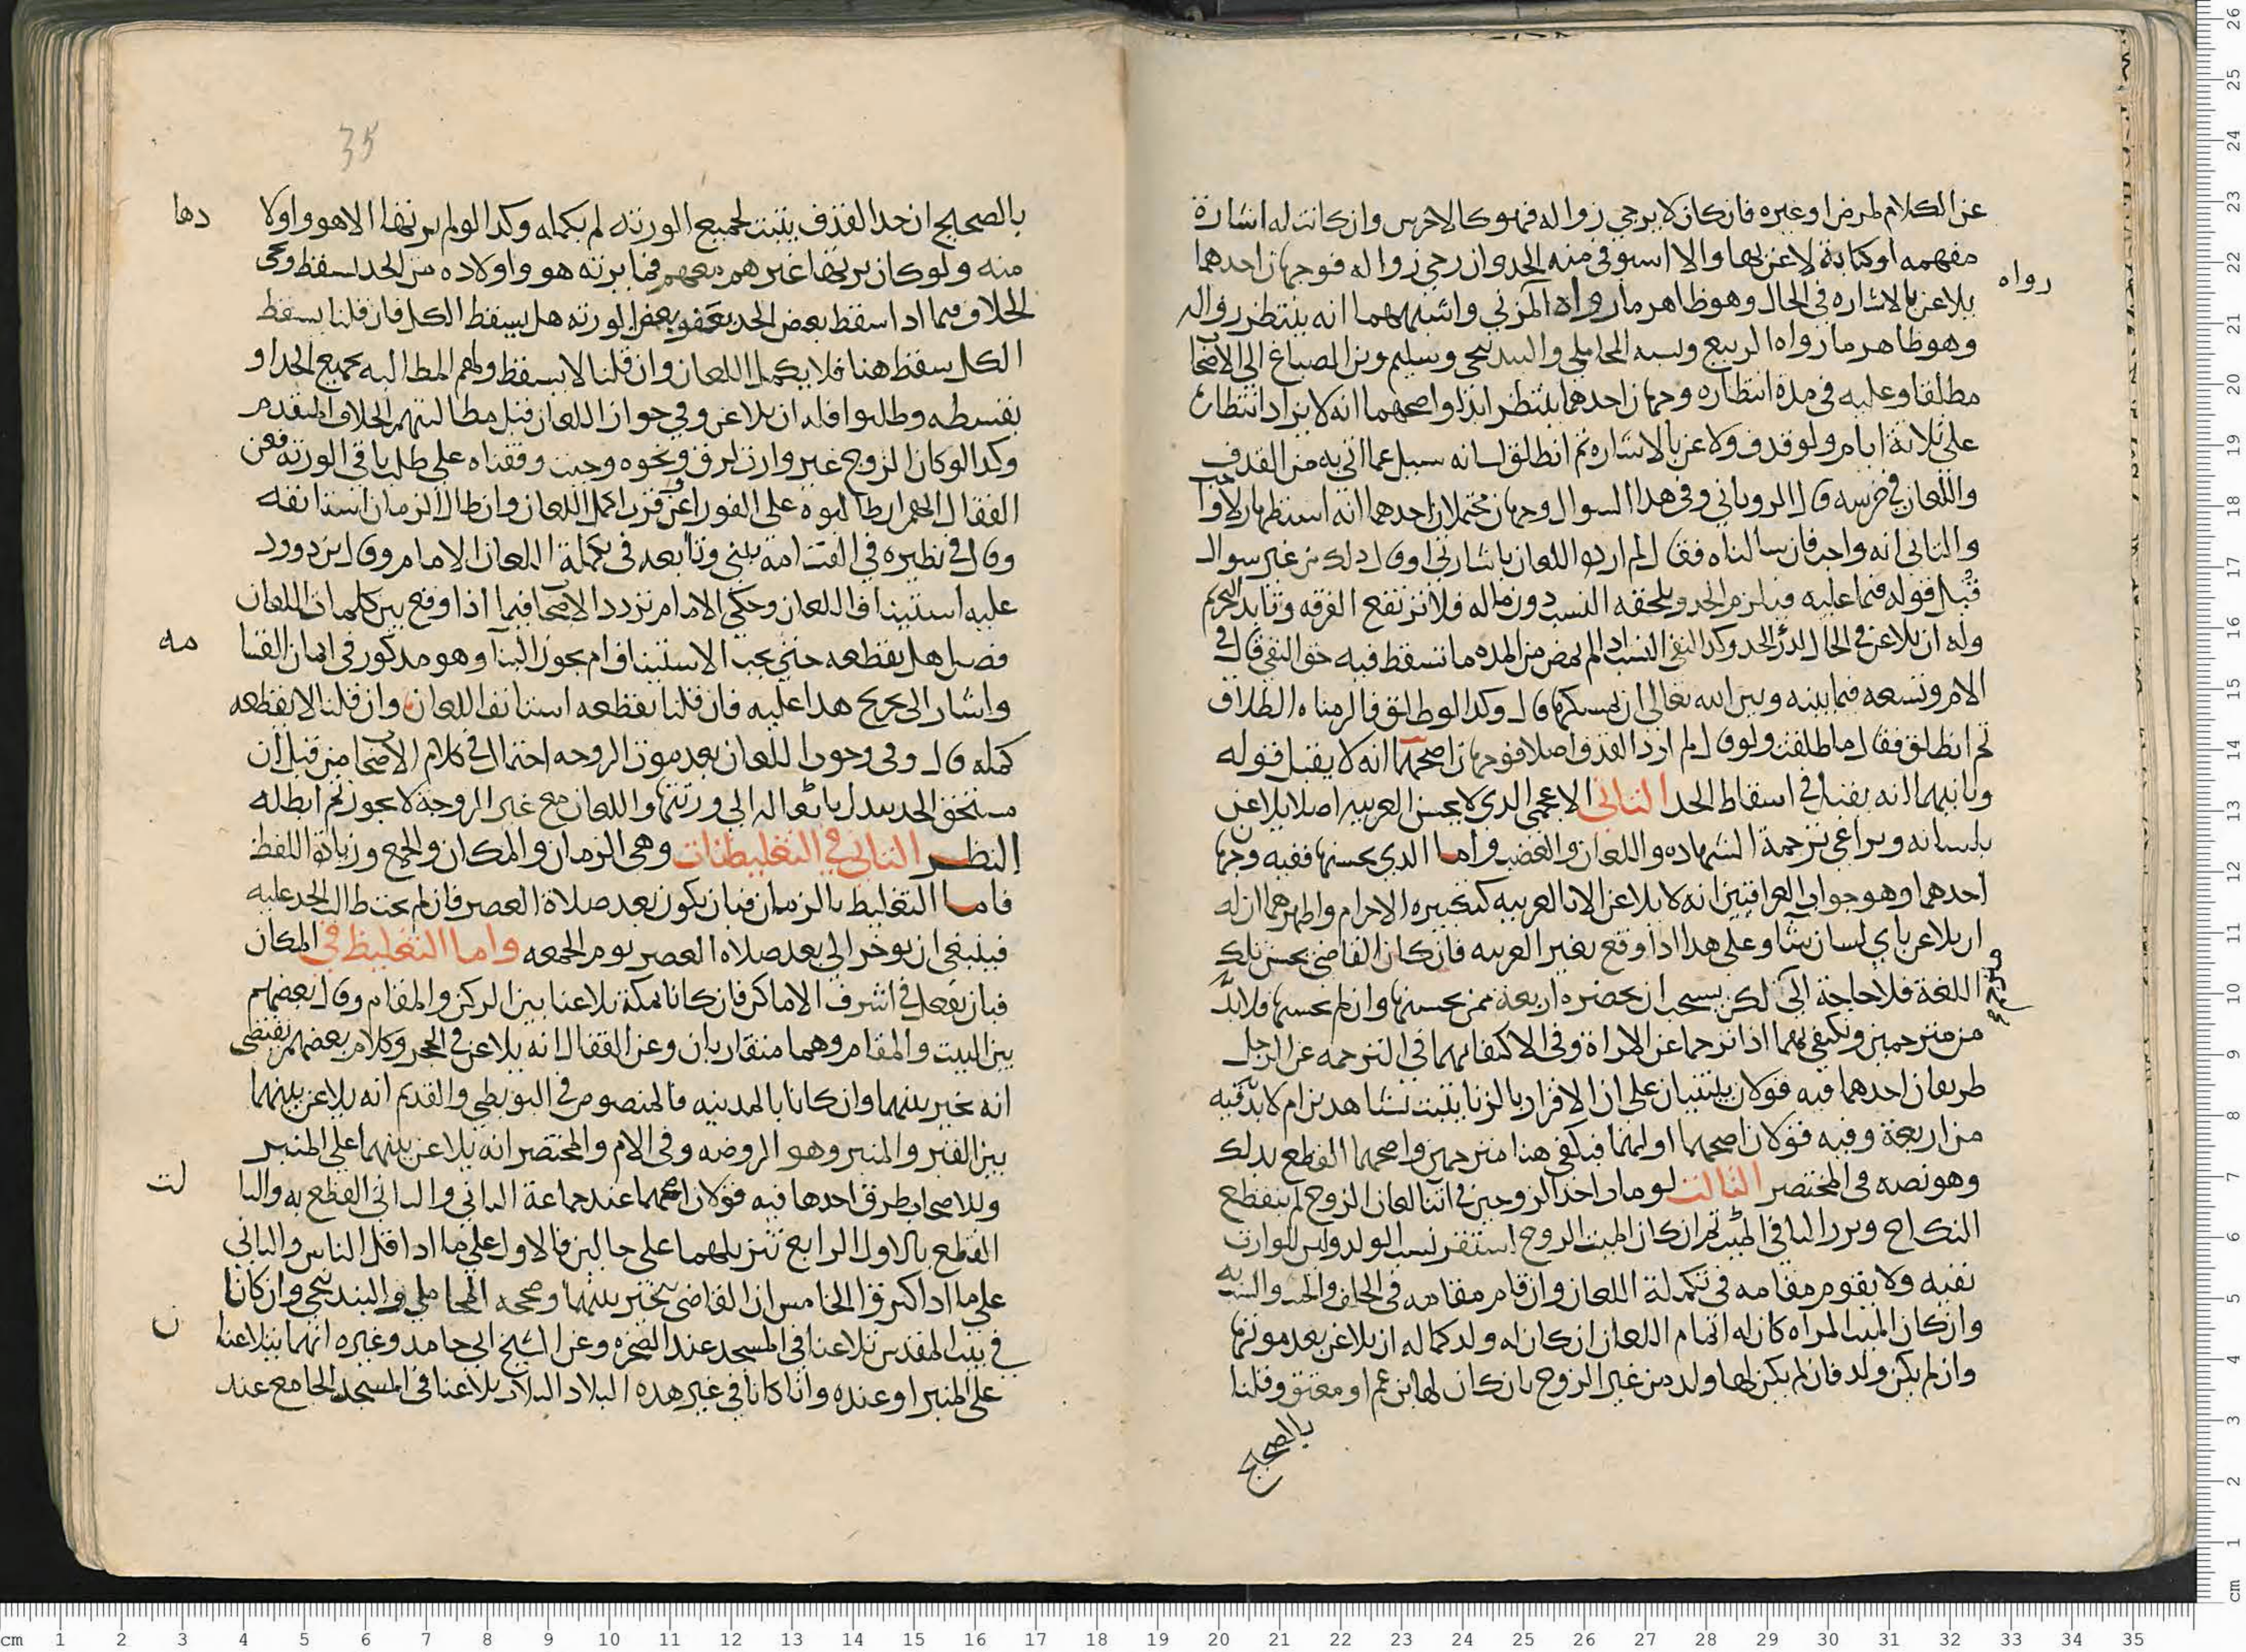 عن الكلام لمرض او غيره فان كان لا يرجي زواله فهو كالاخرس وان كانت له اشارة
مفهمه او كتابة لاعن بها والا استوفي منه الحد وان رجي زواله فوجهان احدهما
رواه
يلاعن بالاشاره في الحال وهو ظاهر ما رواه المزني واشبههما انه ينتظر زواله
وهو ظاهر ما رواه الربيع ونسبه المحاملي والبندنيجي وسليم وبن الصباغ الى الاصحاب
مطلقا وعليه في مدة انتظاره وجهان احدهما ينتظر ابدا واصحهما انه لا يزاد انتظاره
على ثلاثة ايام ولو قذف ولاعن بالاشاره ثم انطلق لسانه سيل عما اتى به من القذف
واللعان في خرسه قال الروياني وفي هذا السوال وجهان محتملان احدهما انه استظهار
والثاني انه واجب فان سالناه فقال لم ارد اللعان باشارتي او قال ذلك من غير سوال
قبل قوله فيما عليه فيلزم الحد ويلحقه النسب دون ماله فلا ترتفع الفرقه وتابد التحريم
وله ان يلاعن في الحال لدر الحد وكذا لنفي النسب اذا لم يمض من المده ما تسقط فيه حق النفي قال في
الام وتسعه فيما بينه وبين الله تعالى ان يمسكها قال وكذا لو طلق فالزمناه الطلاق
ثم انطلق فقال ما طلقت ولو قال لم ارد القذف اصلا فوجهان اصحهما انه لا يقبل قوله
وثانيهما انه يقبل في اسقاط الحد الثاني الاعجمي الذي لا يحسن العربيه اصلا يلاعن
بلسانه ويراعي ترجمة الشهاده واللعان والغضب واما الذي يحسنها ففيه وجهان
احدهما وهو جواب العراقيين انه لا يلاعن الا بالعربيه كتكبيره الاحرام واظهرهما ان له
ان يلاعن باي لسان شا وعلى هذا اذا وقع بغير العربيه فان كان القاضي يحسن تلك
اللغة فلا حاجة الى لكن يستحب ان يحضره اربعة ممن يحسنها وان لم يحسنها فلا بد
مترجم
من مترجمين ونكتفي بهما اذا ترجما عن المراة وفي الاكتفا بهما في الترجمه عن الرجل
طريقان احدهما فيه قولان يبتنيان على ان الاقرار بالزنا يثبت بشاهدين ام لا بد فيه
من اربعة وفيه قولان اصحهما اولهما فيكفي هنا مترجمين واصحهما القطع بذلك
وهو نصه في المختصر الثالث لو مات احد الزوجين في اثنا لعان الزوج لم ينقطع
النكاح ويرث الباقي الميت ثم ان كان الميت الزوج استقر نسب الولد وليس للوارث
نفيه ولا يقوم مقامه في تكملة اللعان وان قام مقامه في الحلف
وان كان الميت المراه كان له اتمام اللعان ان كان له ولد كما له ان يلاعن بعد موتها
وان لم يكن ولد فان لم يكن لها ولد من غير الزوج بان كان لها بن عم او معتق وقلنا
بالصحيح
35
بالصحيح ان حد القذف يثبت لجميع الورثه لم يكمله وكذا لو لم يرثها الا هو واولا
دها
منه ولو كان يرثها غيرهم معهم فما يرثه هو واولاده من الحد سقط وفي
الخلاف فيما اذا سقط بعض الحد بعفو بعض الورثه هل يسقط الكل فان قلنا يسقط
الكل سقط هنا فلا يكمل اللعان وان قلنا لا يسقط ولهم المطالبه بجميع الحد او
بقسطه وطلبوا فله ان يلاعن وفي جواز اللعان قبل مطالبتهم الخلاف المتقدم
وكذا لو كان الزوج غير وارث لرق ونحوه وحيث وقفناه على طلب باقي الورثه فعن
القفال انهم ان طالبوه على الفور عن قرب اكمل اللعان وان طال الزمان استانفه
وقال في نظيره في القسامة يبني وتابعه في تكملة اللعان الامام وقال
عليه استيناف اللعان وحكى الامام تردد الاصحاب فيما اذا وقع بين كلمات اللعان
فصل هل يقطعه حتى يجب الاستيناف ام يجوز البنا وهو مذكور في ايمان القسا
مه
واشار الى تخريج هذا عليه فان قلنا يقطعه استانف اللعان وان قلنا لا يقطعه
كمله قال وفي وجوب اللعان بعد موت الزوجه احتمال في كلام الاصحاب من قبل ان
مستحق الحد يبدل بانتقاله الى ورثتها واللعان مع غير الزوجة لا يجوز ثم ابطله
النظر الثاني في التغليظات وهي الزمان والمكان والجمع وزيادة اللفظ
فاما التغليظ بالزمان فبان يكون بعد صلاة العصر فان لم يكن طالب الحد عليه
فينبغي ان يوخر الى بعد صلاه العصر يوم الجمعه واما التغليظ في المكان
فبان يفعل في اشرف الاماكن فان كانا بمكة تلاعنا بين الركن والمقام وقال بعضهم
بين البيت والمقام وهما متقاربان وعن القفال انه يلاعن في الحجر وكلام بعضهم يقتضي
انه يخير بينهما وان كانا بالمدينه فالمنصوص في البويطي والقديم انه يلاعن بينهما
بين القبر والمنبر وهو الروضه وفي الام والمختصر انه يلاعن بينهما على المنبر
وللاصحاب طرق احدها فيه قولان اصحهما عند جماعة الثاني والثاني القطع به والثا
لث
القطع بالاول الرابع تنزيلهما على حالين فالاول على ما اذا قل الناس والثاني
على ما اذا كثروا الخامس ان القاضي يتخير بينهما وصححه المحاملي والبندنيجي وان كانا
في بيت المقدس تلاعنا في المسجد عند الصخره وعن الشيخ ابي حامد وغيره انهما يتلاعنا
ن
على المنبر او عنده وان كانا في غير هذه البلاد البلاد تلاعنا في المسجد الجامع عند